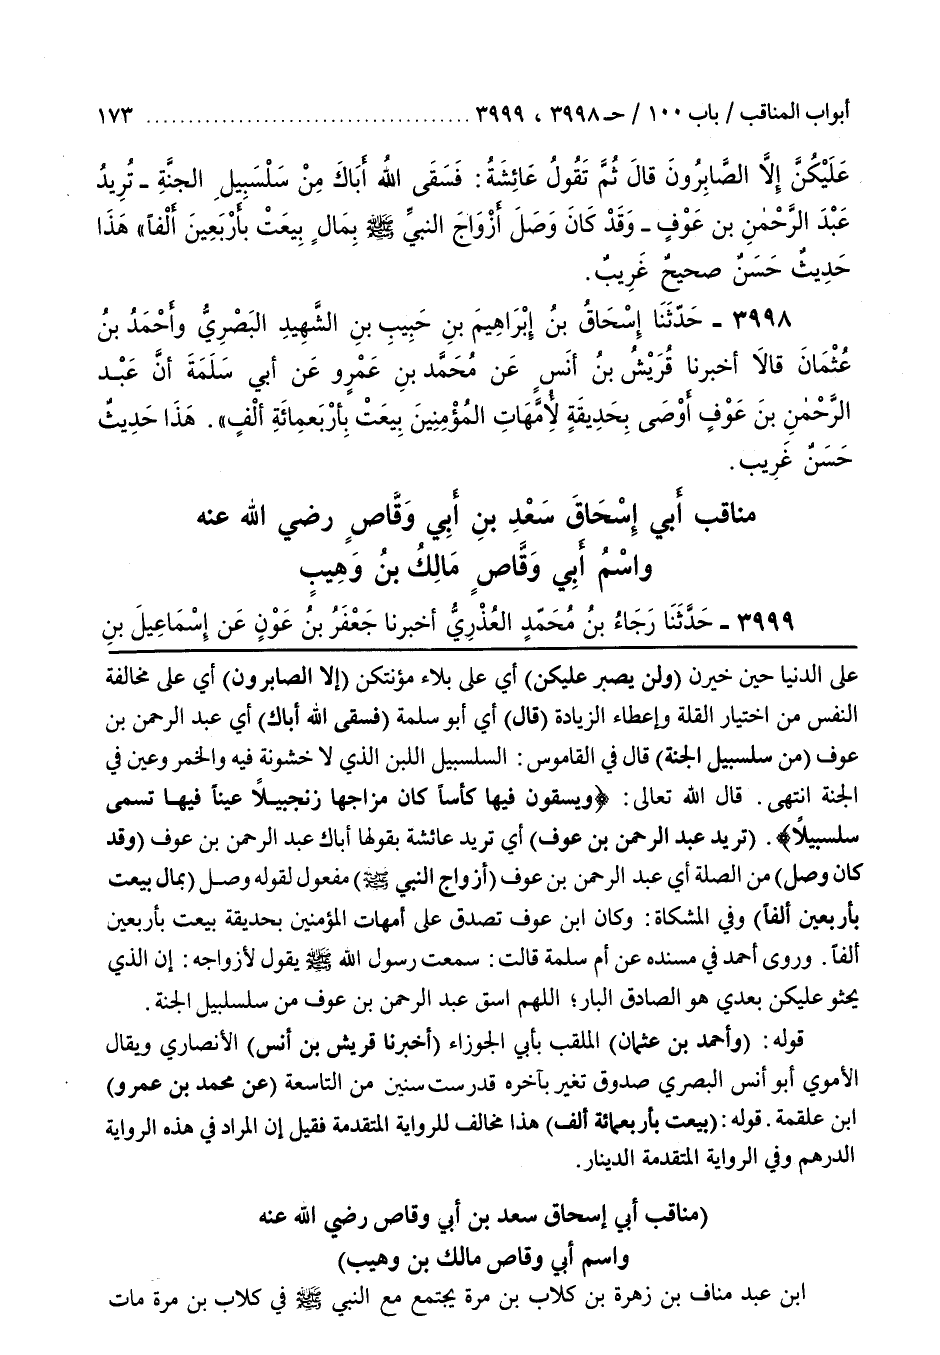 أبواب المناقب / باب ١٠٠ / حـ ٣٩٩٨ ، ٣٩٩٩ ...................................... ١٧٣
عَلَيْكُنَّ إِلَّا الصَّابِرُونَ قالَ ثُمَّ تَقُولُ عَائِشَةُ: فَسَقَى اللهُ أَبَاكَ مِنْ سَلْسَبِيلِ الجنَّةِ ـ تُرِيدُ
عَبْدَ الرَّحْمٰنِ بن عَوْفٍ ـ وَقَدْ كَانَ وَصَلَ أَزْوَاجَ النبيِّ ﷺ بِمَالٍ بِيعَتْ بأَرْبَعِينَ أَلْفاً» هَذَا
حَدِيثٌ حَسَنٌ صحيحٌ غَرِيبٌ.
٣٩٩٨ ـ حَدّثَنَا إِسْحَاقُ بنُ إِبْرَاهِيمَ بنِ حَبِيبِ بنِ الشَّهِيدِ البَصْرِيُّ وأَحْمَدُ بنُ
عُثْمَانَ قالَا أخبرنا قُرَيْشُ بنُ أَنَسٍ عَن مُحَمَّد بنِ عَمْرٍو عَن أبي سَلَمَةَ أنَّ عَبْد
الرَّحْمٰنِ بنَ عَوْفٍ أَوْصَى بِحَدِيقَةٍ لأُمَّهَاتِ المُؤْمِنِينَ بِيعَتْ بِأَرْبَعمِائَةِ ألْفٍ». هَذَا حَدِيثٌ
حَسَنٌ غَرِيب.
مناقب أَبي إِسْحَاقَ سَعْدِ بنِ أَبِي وَقَّاصٍ رضي الله عنه
واسْمُ أَبِي وَقَّاصٍ مَالِكُ بنُ وَهِيبٍ
٣٩٩٩ ـ حَدَّثَنَا رَجَاءُ بنُ مُحَمّدٍ العُذْرِيُّ أخبرنا جَعْفَرُ بنُ عَوْنٍ عَن إِسْمَاعِيلَ بنِ
على الدنيا حين خيرن (ولن يصبر عليكن) أي على بلاء مؤنتكن (إلا الصابرون) أي على مخالفة
النفس من اختيار القلة وإعطاء الزيادة (قال) أي أبو سلمة (فسقى الله أباك) أي عبد الرحمن بن
عوف (من سلسبيل الجنة) قال في القاموس: السلسبيل اللبن الذي لا خشونة فيه والخمر وعين في
الجنة انتهى. قال الله تعالى: ﴿ويسقون فيها كأساً كان مزاجها زنجبيلاً عيناً فيها تسمى
سلسبيلاً﴾. (تريد عبد الرحمن بن عوف) أي تريد عائشة بقولها أباك عبد الرحمن بن عوف (وقد
كان وصل) من الصلة أي عبد الرحمن بن عوف (أزواج النبي ﷺ) مفعول لقوله وصل (بمال بيعت
بأربعين ألفاً) وفي المشكاة: وكان ابن عوف تصدق على أمهات المؤمنين بحديقة بيعت بأربعين
ألفاً. وروى أحمد في مسنده عن أم سلمة قالت: سمعت رسول الله ﷺ يقول لأزواجه: إن الذي
يحثو عليكن بعدي هو الصادق البار؛ اللهم اسق عبد الرحمن بن عوف من سلسلبيل الجنة.
قوله: (وأحمد بن عثمان) الملقب بأبي الجوزاء (أخبرنا قريش بن أنس) الأنصاري ويقال
الأموي أبو أنس البصري صدوق تغير بآخره قدر ست سنين من التاسعة (عن محمد بن عمرو)
ابن علقمة. قوله: (بيعت بأربعمائة ألف) هذا مخالف للرواية المتقدمة فقيل إن المراد في هذه الرواية
الدرهم وفي الرواية المتقدمة الدينار.
(مناقب أبي إسحاق سعد بن أبي وقاص رضي الله عنه
واسم أبي وقاص مالك بن وهيب)
ابن عبد مناف بن زهرة بن كلاب بن مرة يجتمع مع النبي ﷺ في كلاب بن مرة مات